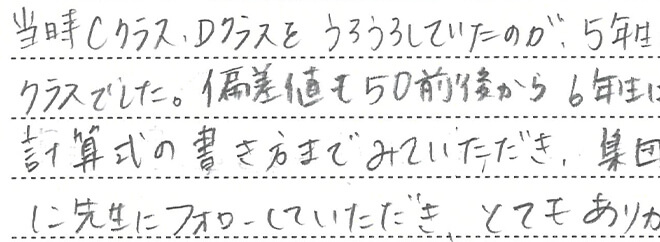 当時Cクラス、Dクラスを うろうろしていたのが、5年生
クラスでした。偏差値も50前後から 6年生に
計算式の書き方までみていただき、集団
に先生にフォローしていただき、とてもありが